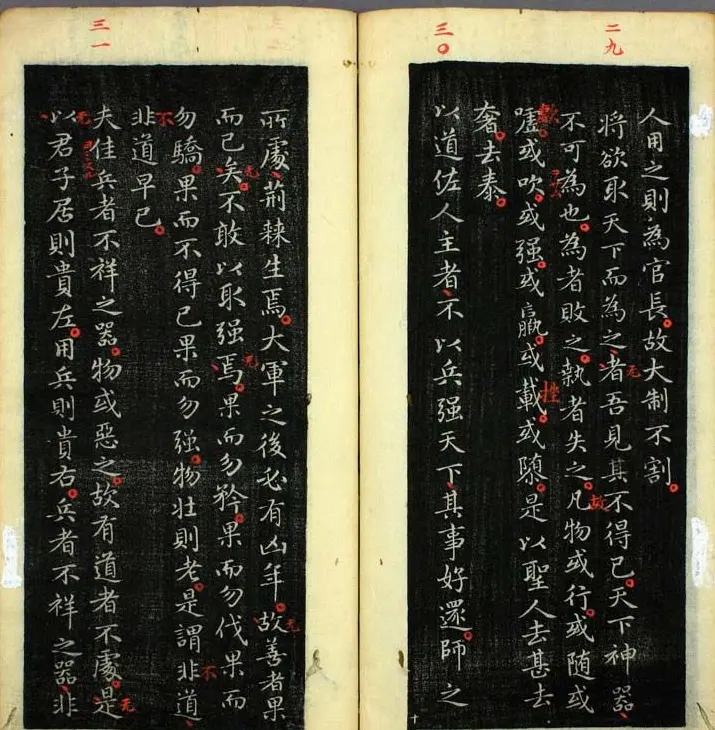 二九
三〇
人用之則為官長故大制不割
将欲取天下而為之者吾見其不得已天下神器
不可為也為者敗之執者失之凡物或行或随或
嘘或吹或强或羸或載或隳是以聖人去甚去
奢去泰
以道佐人主者不以兵强天下其事好還師之
无
故
歔
挫
三一
所處荆棘生焉大軍之後必有凶年故善者果
而已矣不敢以取强焉果而勿矜果而勿伐果而
勿驕果而不得已果而勿强物壮則老是謂非道
非道早已
夫佳兵者不祥之器物或惡之故有道者不處是
以君子居則貴左用兵則貴右兵者不祥之器非
无
无
无
不
不
无
无